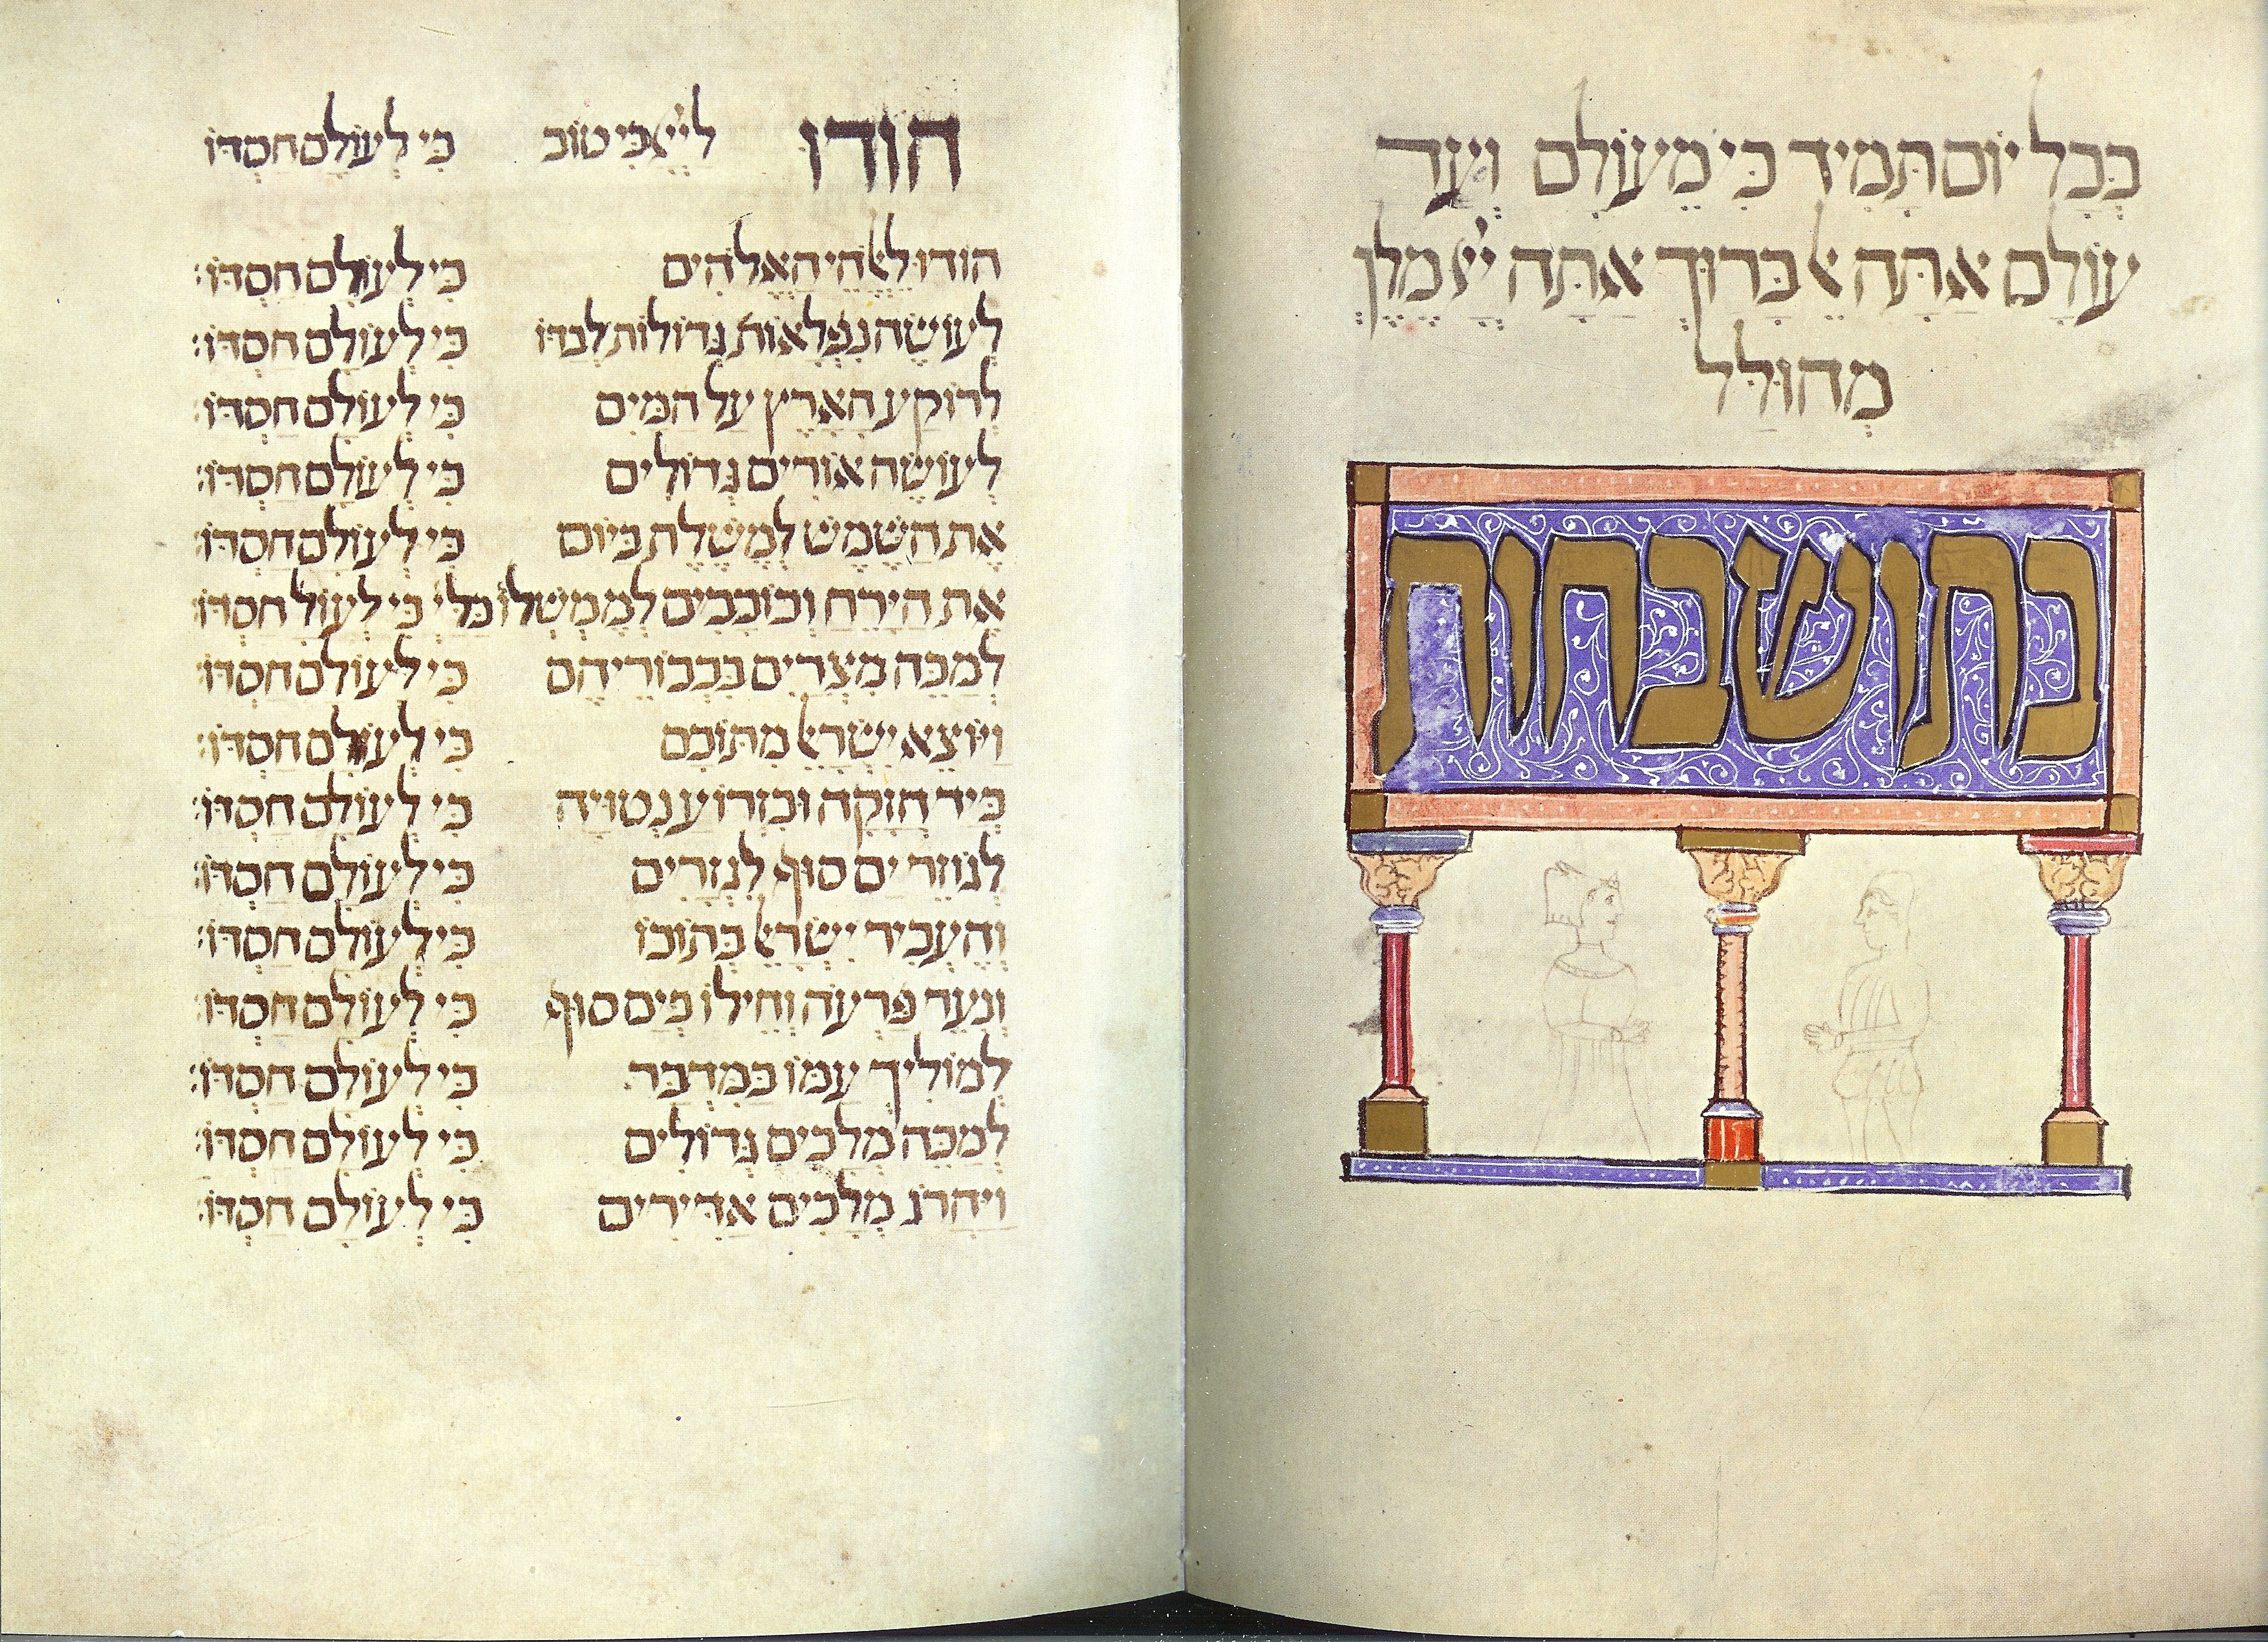 בְּכָל יוֹם תָּמִיד כִּי מֵעוֹלָם וְעַד
עוֹלָם אַתָּה אֵל בָּרוּךְ אַתָּה יְיָ מֶלֶךְ
מְהוּלַּל
בתושבחות
הודו לַיְיָ כִּי טוֹב כִּי לְעוֹלָם חַסְדּוֹ
הודו לֵאלֹהֵי הָאֱלֹהִים כִּי לְעוֹלָם חַסְדּוֹ:
לְעוֹשֶׂה נִפְלָאוֹת גְּדוֹלוֹת לְבַדּוֹ כִּי לְעוֹלָם חַסְדּוֹ:
לְרוֹקַע הָאָרֶץ עַל הַמַּיִם כִּי לְעוֹלָם חַסְדּוֹ:
לְעוֹשֶׂה אוֹרִים גְּדוֹלִים כִּי לְעוֹלָם חַסְדּוֹ:
אֶת הַשֶּׁמֶשׁ לְמֶמְשֶׁלֶת בַּיּוֹם כִּי לְעוֹלָם חַסְדּוֹ:
אֶת הַיָּרֵחַ וְכוֹכָבִים לְמֶמְשְׁלוֹ כִּי לְעוֹל חַסְדּוֹ:
לְמַכֵּה מִצְרַיִם בִּבְכוֹרֵיהֶם כִּי לְעוֹלָם חַסְדּוֹ:
וַיּוֹצֵא יִשְׂרָאֵל מִתּוֹכָם כִּי לְעוֹלָם חַסְדּוֹ:
בְּיָד חֲזָקָה וּבִזְרוֹעַ נְטוּיָה כִּי לְעוֹלָם חַסְדּוֹ:
לְגוֹזֵר יַם סוּף לִגְזָרִים כִּי לְעוֹלָם חַסְדּוֹ:
וְהֶעֱבִיר יִשְׂרָאֵל בְּתוֹכוֹ כִּי לְעוֹלָם חַסְדּוֹ:
וְנִעֵר פַּרְעֹה וְחֵילוֹ בְיַם סוּף כִּי לְעוֹלָם חַסְדּוֹ:
לְמוֹלִיךְ עַמּוֹ בַּמִּדְבָּר כִּי לְעוֹלָם חַסְדּוֹ:
לְמַכֵּה מְלָכִים גְּדוֹלִים כִּי לְעוֹלָם חַסְדּוֹ:
וַיַּהֲרֹג מְלָכִים אַדִּירִים כִּי לְעוֹלָם חַסְדּוֹ: